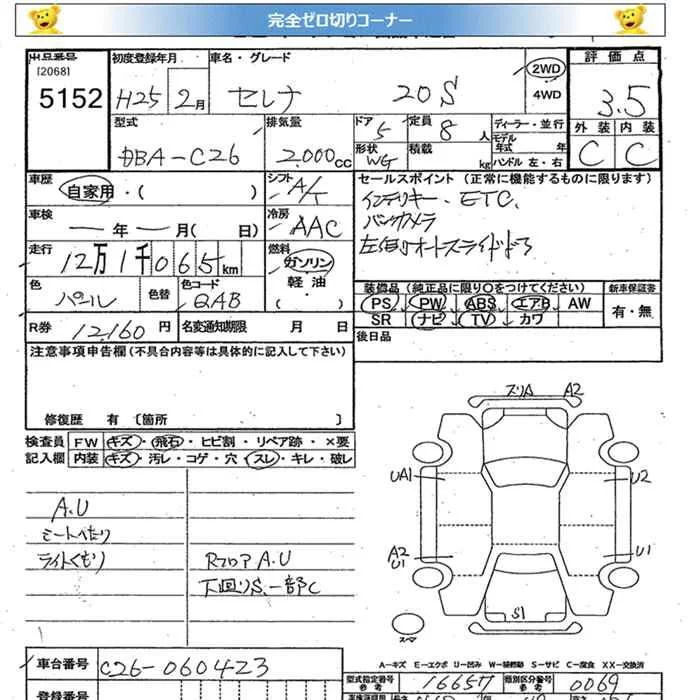 完全ゼロ切りコーナー
出品番号 初度登録年月 車名・グレード 評価点
[2068]
5152 H25 2月 セレナ 20S 2WD 4WD 3.5
外装 内装
C C
型式 排気量 ドア 定員 ディーラー・並行
DBA-C26 2,000cc 5 8人 モデル年式 年
形状 積載 kg ハンドル 左・右
WG
車歴 シフト セールスポイント (正常に機能するものに限ります)
自家用・( ) A/T インテリキー・ETC、
車検 冷房 バックカメラ
ー年ー月( 日) AAC 左側オートスライドドア
走行 燃料
12万1千065km ガソリン
色 色替 色コード 軽油・( ) 装備品 (純正品に限り○をつけてください) 新車保証書
パール QAB PS PW ABS エアB AW 有・無
SR ナビ TV カワ
R券 12,160円 名変通知期限 月 日 後日品
注意事項申告欄(不具合内容等は具体的に記入して下さい)
修復歴 有 〔箇所 〕
検査員 FW キズ・飛石・ヒビ割・リペア跡・×要
記入欄 内装 キズ・汚レ・コゲ・穴・スレ・キレ・破レ
A.U
シートへたり
ライトくもり
RフロアA.U
下回りS、一部C
ズリA A2
UA1 U2
A2 U1
U1
S1
スマ
A－キズ E－エクボ U－凹み W－補修跡 S－サビ C－腐食 XX－交換済
車台番号 C26-060423 型式指定番号 参考 16657 類別区分番号 参考 0069
登録番号